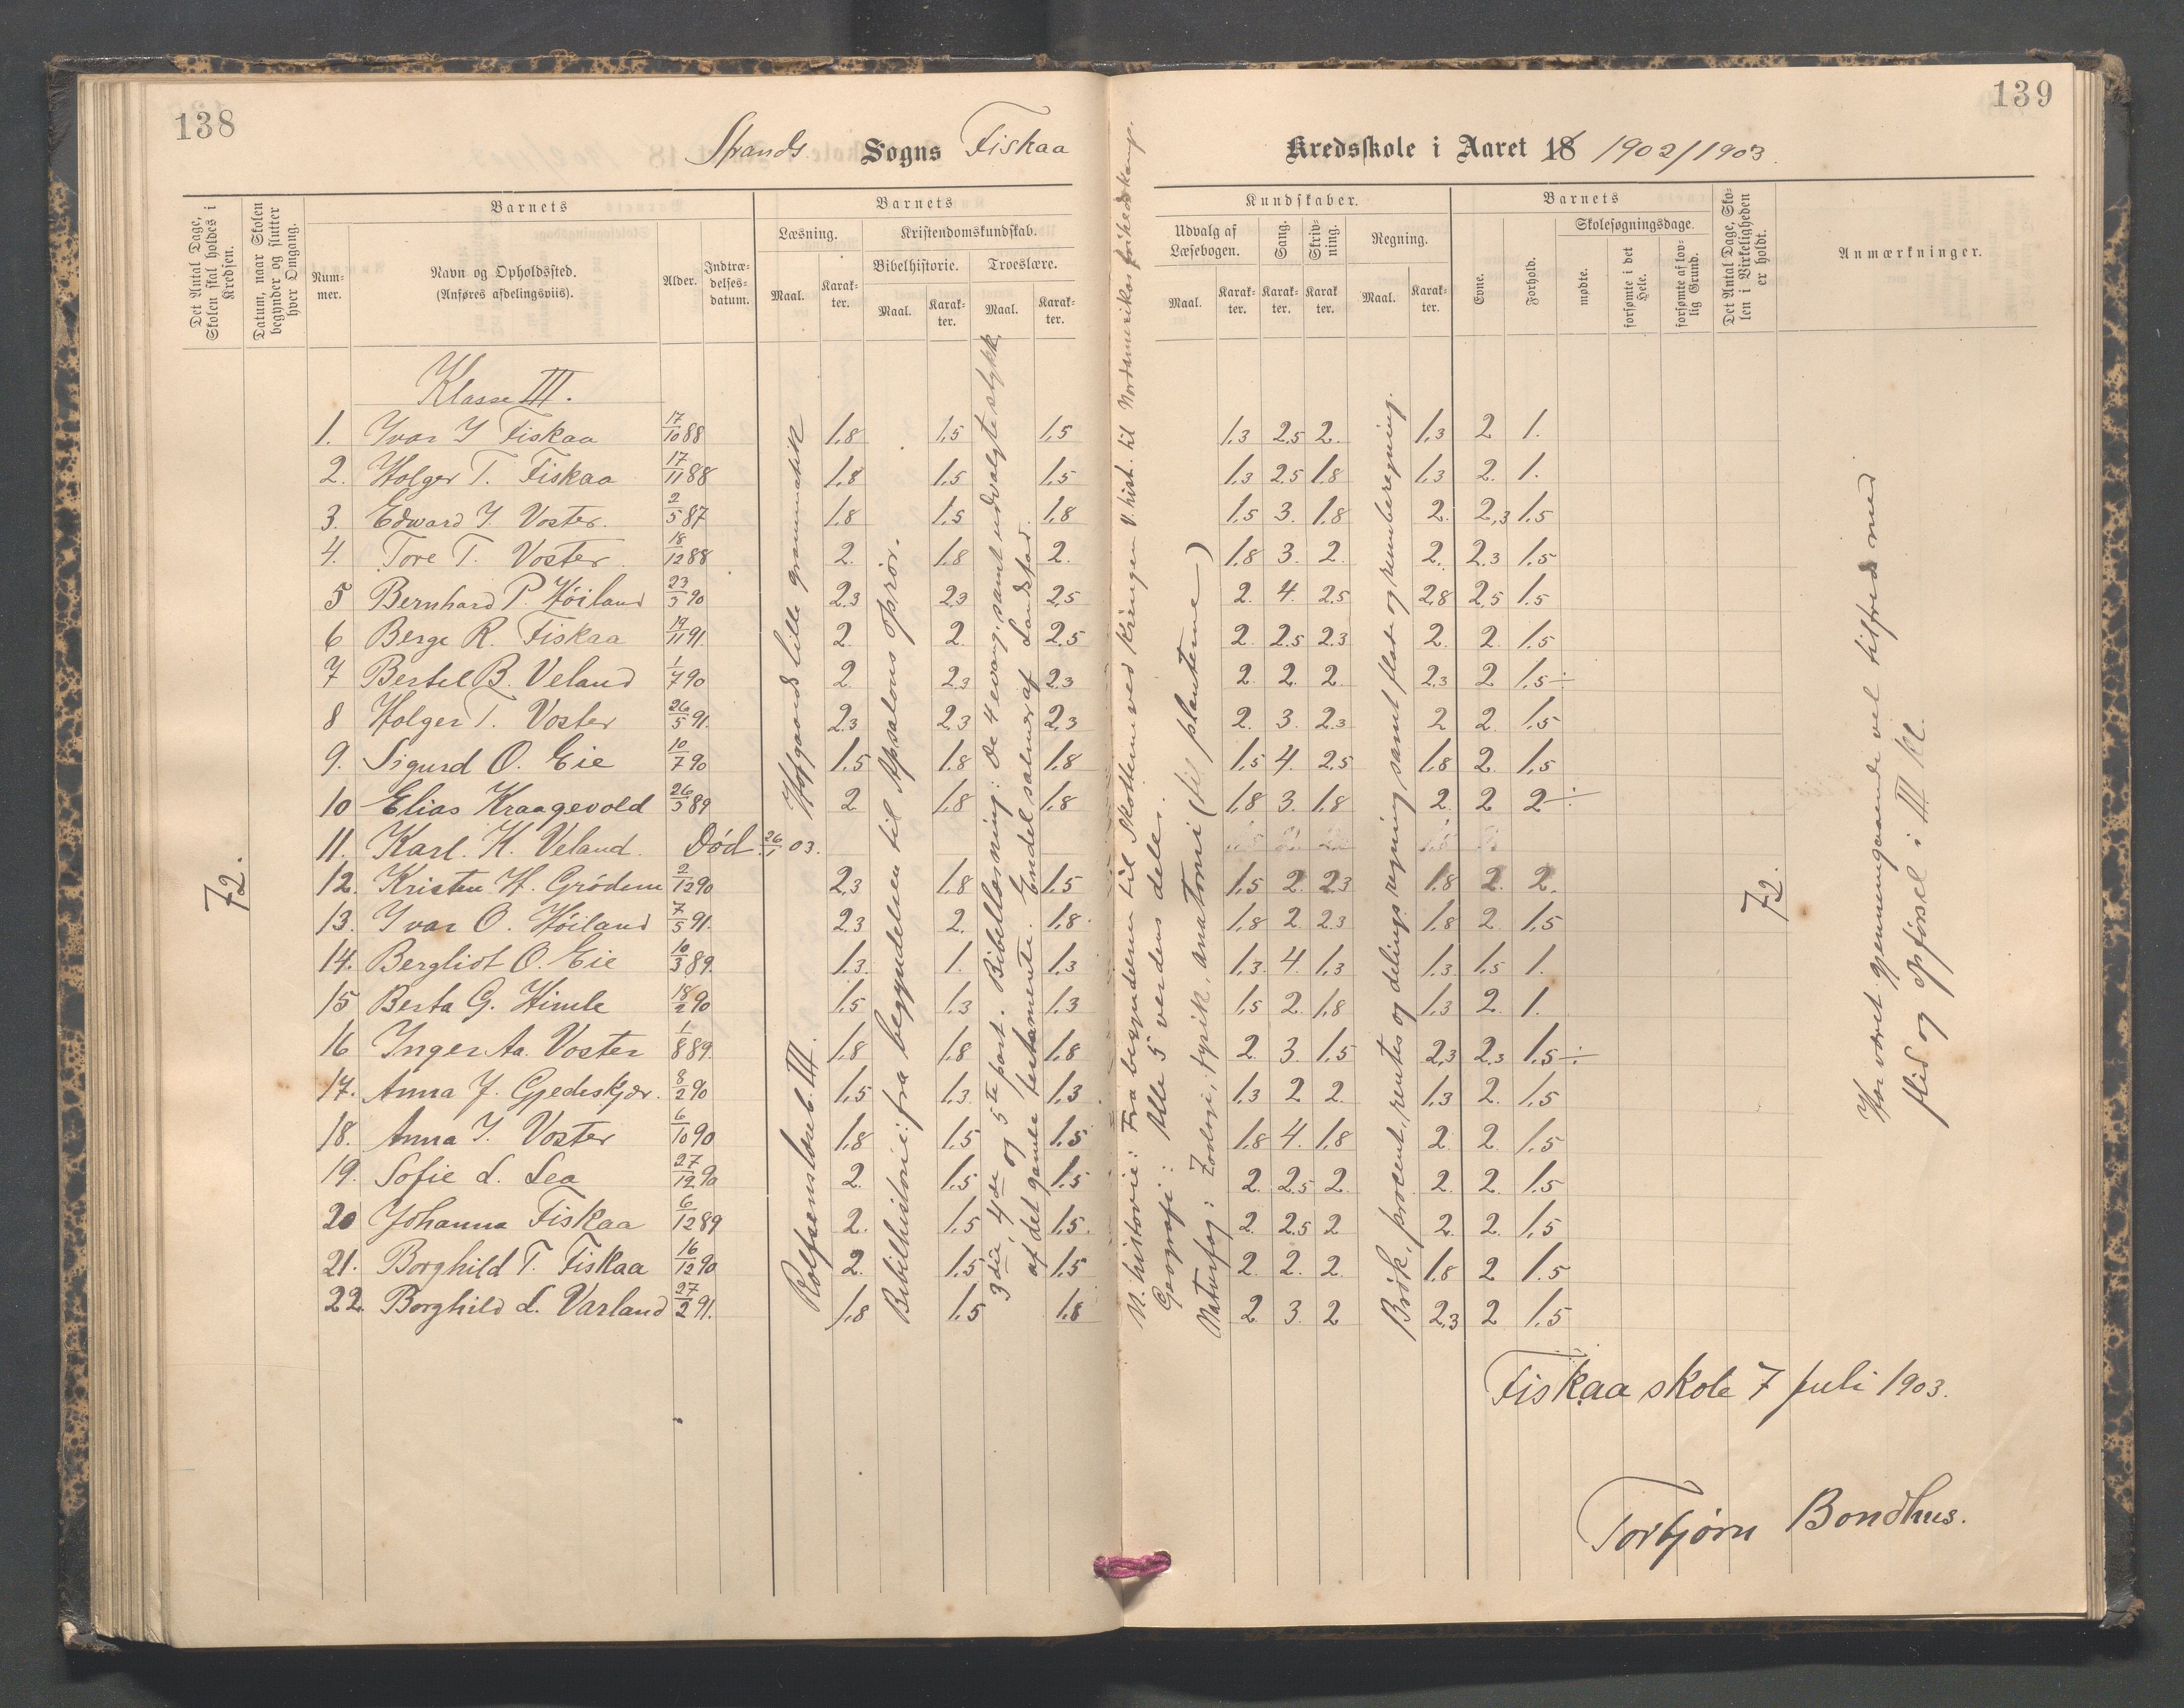 138
139
Strands Sogns Fiskaa
Kredsskole i Aaret 18 1902/1903.
Det Antal Dage, Skolen skal holdes i Kredsen.
Datum, naar Skolen begynder og slutter hver Omgang.
Barnets
Num-
mer.
Navn og Opholdssted.
(Anføres afdelingsviis).
Alder.
Indtræ-
delses-
datum.
Barnets
Læsning.
Kristendomskundskab.
Bibelhistorie.
Troeslære.
Maal.
Karak-
ter.
Maal.
Karak-
ter.
Maal.
Karak-
ter.
Kundskaber.
Udvalg af Læsebogen.
Sang.
Skriv-
ning.
Regning.
Maal.
Karak-
ter.
Karak-
ter.
Karak
ter.
Maal.
Karak-
ter.
Barnets
Evne.
Forhold.
Skolesøgningsdage.
mødte.
forsømte i det Hele.
forsømte af lov-
lig Grund.
Det Antal Dage, Sko-
len i Virkeligheden er holdt.
Anmærkninger.
Klasse III.
1. Yvar I Fiskaa 17/10 88 1,8 1,5 1,5 1,3 2,5 2. 1,3 2 1.
2. Holger T. Fiskaa 17/11 88 1,8 1,5 1,5 1,3 2,5 1,8 1,3 2. 1.
3. Edward I. Voster. 2/5 87 1,8 1,5 1,8 1,5 3. 1,8 2. 2,3 1,5
4. Tore T. Voster 18/12 88 2. 1,8 2. 1,8 3. 2. 2. 2,3 1,5
5 Bernhard P. Høiland 23/5 90 2,3 2,3 2,5 2. 4. 2,5 2,8 2,5 1,5
6 Berge R. Fiskaa 19/11 91. 2. 2. 2,5 2. 2,5 2,3 2. 2. 1,5
7 Bertel B. Veland 1/7 90 2 2,3 2,3 2. 2. 2 2,3 2 1,5 ÷
8 Holger T. Voster 26/5 91. 2,3 2,3 2,3 2. 3. 2,3 2 2. 1,5
9. Sigurd O. Eie 10/7 90 1,5 1,8 1,8 1,5 4. 2,5 1,8 2. 1,5
10 Elias Kraagevold 26/5 89 2 1,8 1,8 1,8 3. 1,8 2. 2 2 ÷
11. Karl. K. Veland. Død 26/1 03.
12. Kristen H. Grödem 2/12 90 2,3 1,8 1,5 1,5 2. 2,3 1,8 2. 2.
13. Yvar O. Høiland 7/5 91. 2,3 2. 1,8. 1,8 2 2,3 1,8 2. 1,5
14. Bergliot O. Eie 10/3 89. 1,3. 1. 1,3 1,3. 4. 1,3 1,3 1,5 1.
15 Berta G. Himle 18/2 90 1,5 1,3 1,3 1,5 2. 1,8 1,3 2. 1.
16 Inger Aa. Voster 1/8 89. 1,8 1,8 1,8 2. 3. 1,5 2,3 2,3 1,5 ÷
17. Anna J. Gjedeskjær. 8/2 90 1,5 1,3 1,3. 1,3 2 2 1,3 2. 1,5
18. Anna I. Voster 6/10 90 1,8 1,5 1,5 1,8 4. 1,8 2 2. 1,5
19. Sofie L. Lea 27/12 90 2. 1,5 1,5 2. 2,5 2. 2. 2. 1,5
20 Johanna Fiskaa 6/12 89 2. 1,5 1,5. 2. 2,5 2 2. 2. 1,5
21. Borghild T. Fiskaa 16/12 90 2. 1,5 1,5 2. 2. 2. 1,8 2 1.5
22. Borghild L. Varland 27/2 91. 1,8 1,5 1,8 2. 3. 2 2,3 2 1,5
72.
Rolfsens læseb. III. Hofgaards lille grammatik
Bibelhistorie: fra begyndelsen til Apsalons oprör.
3die, 4de og 5te part. Bibellæsning: de 4 evang. samt udvalgte stykk.
af det gamle testamente. Endel salmer af Landstad.
N. historie: Fra begyndelsen til Skotten ved Kringen V. hist. til Nordamerikas frihedskamp.
Geografi: Alle 5 verdens dele.
Naturfag: Zoologi, fysik, anatomi (til planterne)
Brök, procent, rentes og delings regning samt flade og rumberegning.
72.
Har været gjennemgaaende vel tilfreds med
flid og opførsel i III kl.
Fiskaa skole 7 Juli 1903.
Torbjørn Bondhus.